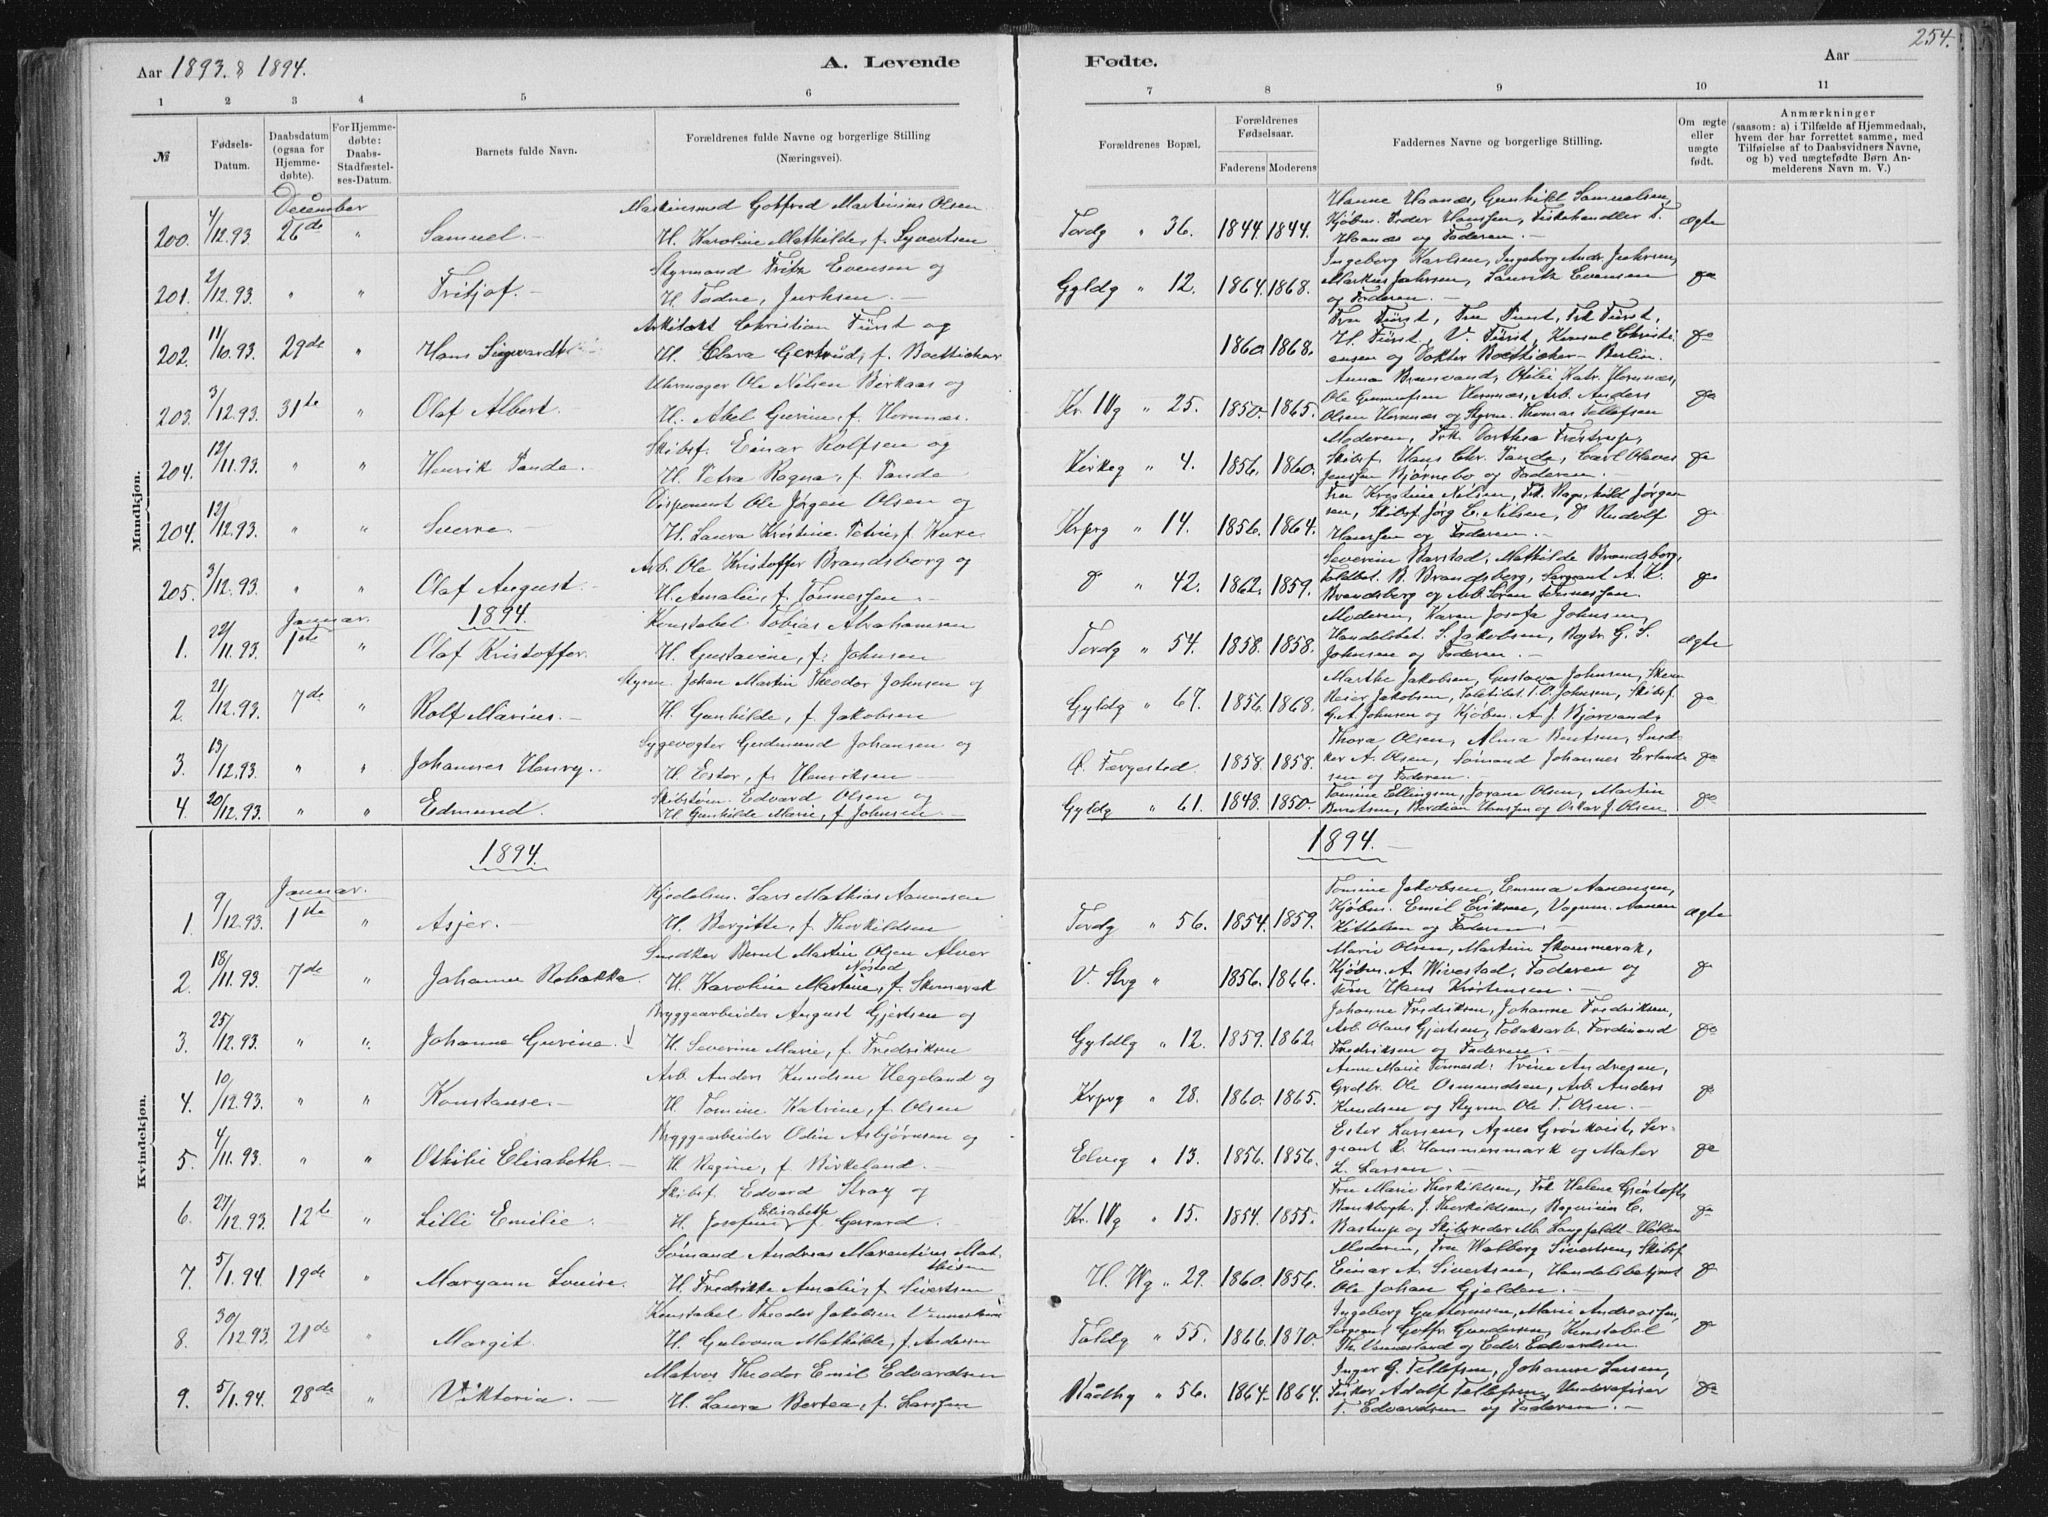 254.
Aar 1893. & 1894.
A. Levende
Fødte.
Aar
1 2 3 4 5 6 7 8 9 10 11
№
Fødsels-Datum.
Daabsdatum (ogsaa for Hjemmedøbte).
For Hjemmedøbte: Daabs-Stadfæstelses-Datum.
Barnets fulde Navn.
Forældrenes fulde Navne og borgerlige Stilling (Næringsvei).
Forældrenes Bopæl.
Forældrenes Fødselsaar.
Faderens Moderens
Faddernes Navne og borgerlige Stilling.
Om ægte eller uægte født.
Anmærkninger
(saasom: a) i Tilfælde af Hjemmedaab, hvem der har forrettet samme, med Tilføielse af to Daabsvidners Navne, og b) ved uægtefødte Børn Anmelderens Navn m. V.)
Mandkjøn.
December
200. 4/12.93. 26de " Samuel. Gotfred Martinius Olsen
H. Karoline Mathilde, f. Syvertsen
Tordg " 36. 1844. 1844.
Hanne Haanæs, Gunhild Samuelsen,
Kjøbm. Peder Hanssen, Fiskehandler T.
Haanæs og Faderen. ægte
201. 2/12.93. " " Fritjof. Styrmand Fritz Evensen og
H. Todne, Jurksen.
Gyldg " 12. 1864. 1868.
Ingeborg Karlsen, Ingeborg Andr. Jahrsen,
Markus Jahrsen, Lauritz Evensen
og Faderen. do
202. 11/10.93. 29de " Hans Siegwardt Arkitekt Christian Fürst og
H. Clara Gertrud, f. Boetticher
1860. 1868.
Fru Fürst, Fru Tunst, Frk Fürst,
H. Fürst, V. Fürst, Konsul Christiansen og Doktor Boetticher Berlin. do
203. 3/12.93. 31te " Olaf Albert. Uhrmager Ole Nilsen Birkaas og
H. Abel Gurine, f. Homnæs.
Kr. IVg " 25. 1850. 1865.
Anna Brauvand, Otilie Katr. Homnæs,
Ole Gunnufsen Homnæs, Arb. Anders
Olsen Homnæs og Styrm. Thomas Tellefsen do
204. 12/11.93. " " Henrik Tande. Skibsf. Einar Rolfsen og
H. Petra Ragna, f. Tande
Kirkeg " 4. 1856. 1860.
Moderen, Frk. Dorthea Tristrup,
Skibsf. Hans Chr. Tande, Carl Olaves
Jenssen Bjørnebo og Faderen do
204. 12/12.93. " " Sverre. Disponent Ole Jørgen Olsen og
H. Laura Kristine Petrie, f. Kure
Krprg " 14. 1856. 1864.
Fru Kristine Nilsen, Frk. Ragnhild Jørgensen, Skibsf. Jørg C. Nilsen, Rudolf
Hanssen og Faderen. do
205. 3/12.93. " " Olaf August. Arb. Ole Kristoffer Brandsborg og
H. Amalie, f. Tønnessen.
do " 42. 1862. 1859.
Severine Barstad, Mathilde Brandsborg,
Toldbet. B. Brandsberg, Sergeant A. K.
Brandsberg og Arb. Søren Tønnessen. do
Januar. 1894.
1. 22/11.93. 1ste " Olaf Kristoffer. Konstabel Tobias Abrahamsen
H. Gustavine, f. Johnsen
Tordg " 54. 1858. 1858.
Moderen, Karen Josefa Johnsen,
Handelsbet. S. Jakobsen, G. S.
Johnsen og Faderen. ægte
2. 21/12.93. 7de " Rolf Marius. Styrm. Johan Martin Theodor Johnsen og
H. Gunhilde, f. Jakobsen
Gyldg " 67. 1856. 1868.
Marthe Jakobsen, Gustava Johnsen,
Reier Jakobsen, T. O. Johnsen, Skibsf.
G. A. Johnsen og Kjøbm. A. J. Bjorvand. do
3. 13/12.93. " " Johannes Henry. Sygevogter Gudmund Johansen og
H. Ester, f. Henriksen
Ø. Færgested. 1858. 1858.
Thora Olsen, Alma Bentsen, Snedker A. Olsen, Sømand Johannes Erlandsen og Faderen. do
4. 20/12.93. " " Edmund. Skibstøm. Edvard Olsen og
H. Gunhilde Marie, f. Johnsen.
Gyldg " 61. 1848. 1850.
Tomine Ellingsen, Jorane Olsen, Martin
Berntsen, Berdian Hanssen og Oskar J. Olsen do
Kvindekjøn.
1894. 1894.
Januar.
1. 9/12.93. 1ste " Asjer. Kjedelsm. Lars Mathias Aanensen
H. Bergitte, f. Thorkildsen
Tordg " 56. 1854. 1859.
Tomine Jakobsen, Emma Aanensen,
Kjøbm. Emil Eriksen, Vognm. Aanen
Kittelsen og Faderen. ægte
2. 18/11.93. 7de " Johanne Rebekka. Snedker Bernt Martin Olsen Alver
Nøsted
H. Karoline Martine, f. Skomerak
V. Stvg " 1856. 1866.
Marie Olsen, Martine Skommerak,
Kjøbm. A. Wivestad, Faderen og
Tøm. Hans Kristensen. do
3. 25/12.93. " " Johanne Gurine. Bryggearbeider August Gjertsen og
H. Severine Marie, f. Fredriksen
Gyldlg " 12. 1859. 1862.
Johanne Fredriksen, Johanne Fredriksen,
Arb. Olaus Gjertsen, Tobaksarb. Ferdinand
Fredriksen og Faderen. do
4. 10/12.93. " " Konstanse. Arb. Anders Knudsen Hegeland og
H. Tomine Katrine, f. Olsen
Krprg " 28. 1860. 1865.
Anne Marie Tønnesd. Trine Andresen,
Grdbr. Ole Osmundsen, Arb. Anders
Knudsen og Styrm Ole T. Olsen. do
5. 4/11.93. " " Othilie Elisabeth. Bryggearbeider Odin Asbjørnsen og
H. Ragine, f. Birkeland.
Elveg " 13. 1856. 1856.
Ester Larsen, Agnes Grönkvist, Sergeant R. Hammersmark og Maler
L. Larsen. do
6. 27/12.93. 12te " Lilli Emilie. Skibsf. Edvard Stray og
Elisabeth
H. Josefine, f. Gerrard.
Kr. IVg " 15. 1854. 1855.
Fru Marie Thorkildsen, Frk Helene Grøntoft,
Bankbogh. J. Thorkildsen, C.
Bastrup og Skibsreder M. Langfeldt do
7. 5/1.94. 19de " Maryann Louise. Sømand Andreas Marentius Mathisen
H. Fredrikke Amalie, f. Sivertsen
H. Wg " 29. 1860. 1856.
Moderen, Fru Walborg Sivertsen, Skibsf.
Einar A. Sivertsen, Handelsbetjent
Ole Johan Gjelden. do
8. 30/12.93. 21de " Margit. Konstabel Theodor Jakobsen
H. Gulovna Mathilde, f. Andersen
Toldg " 55. 1866. 1870.
Ingeborg Guttormsen, Marie Andreassen,
Sergeant Gotfr. Gundersen, Konstabel
Th. Vennesland og Edv. Edvardsen do
9. 5/1.94. 28de " Viktoria. Matros Theodor Emil Edvardsen
H. Laura Bertea, f. Larssen
Rådhg " 56. 1864. 1864.
Inger G. Tellefsen, Johanne Larsen,
Fisker Adolf Tellefsen, Underofficer
T. Edvardsen og Faderen. do